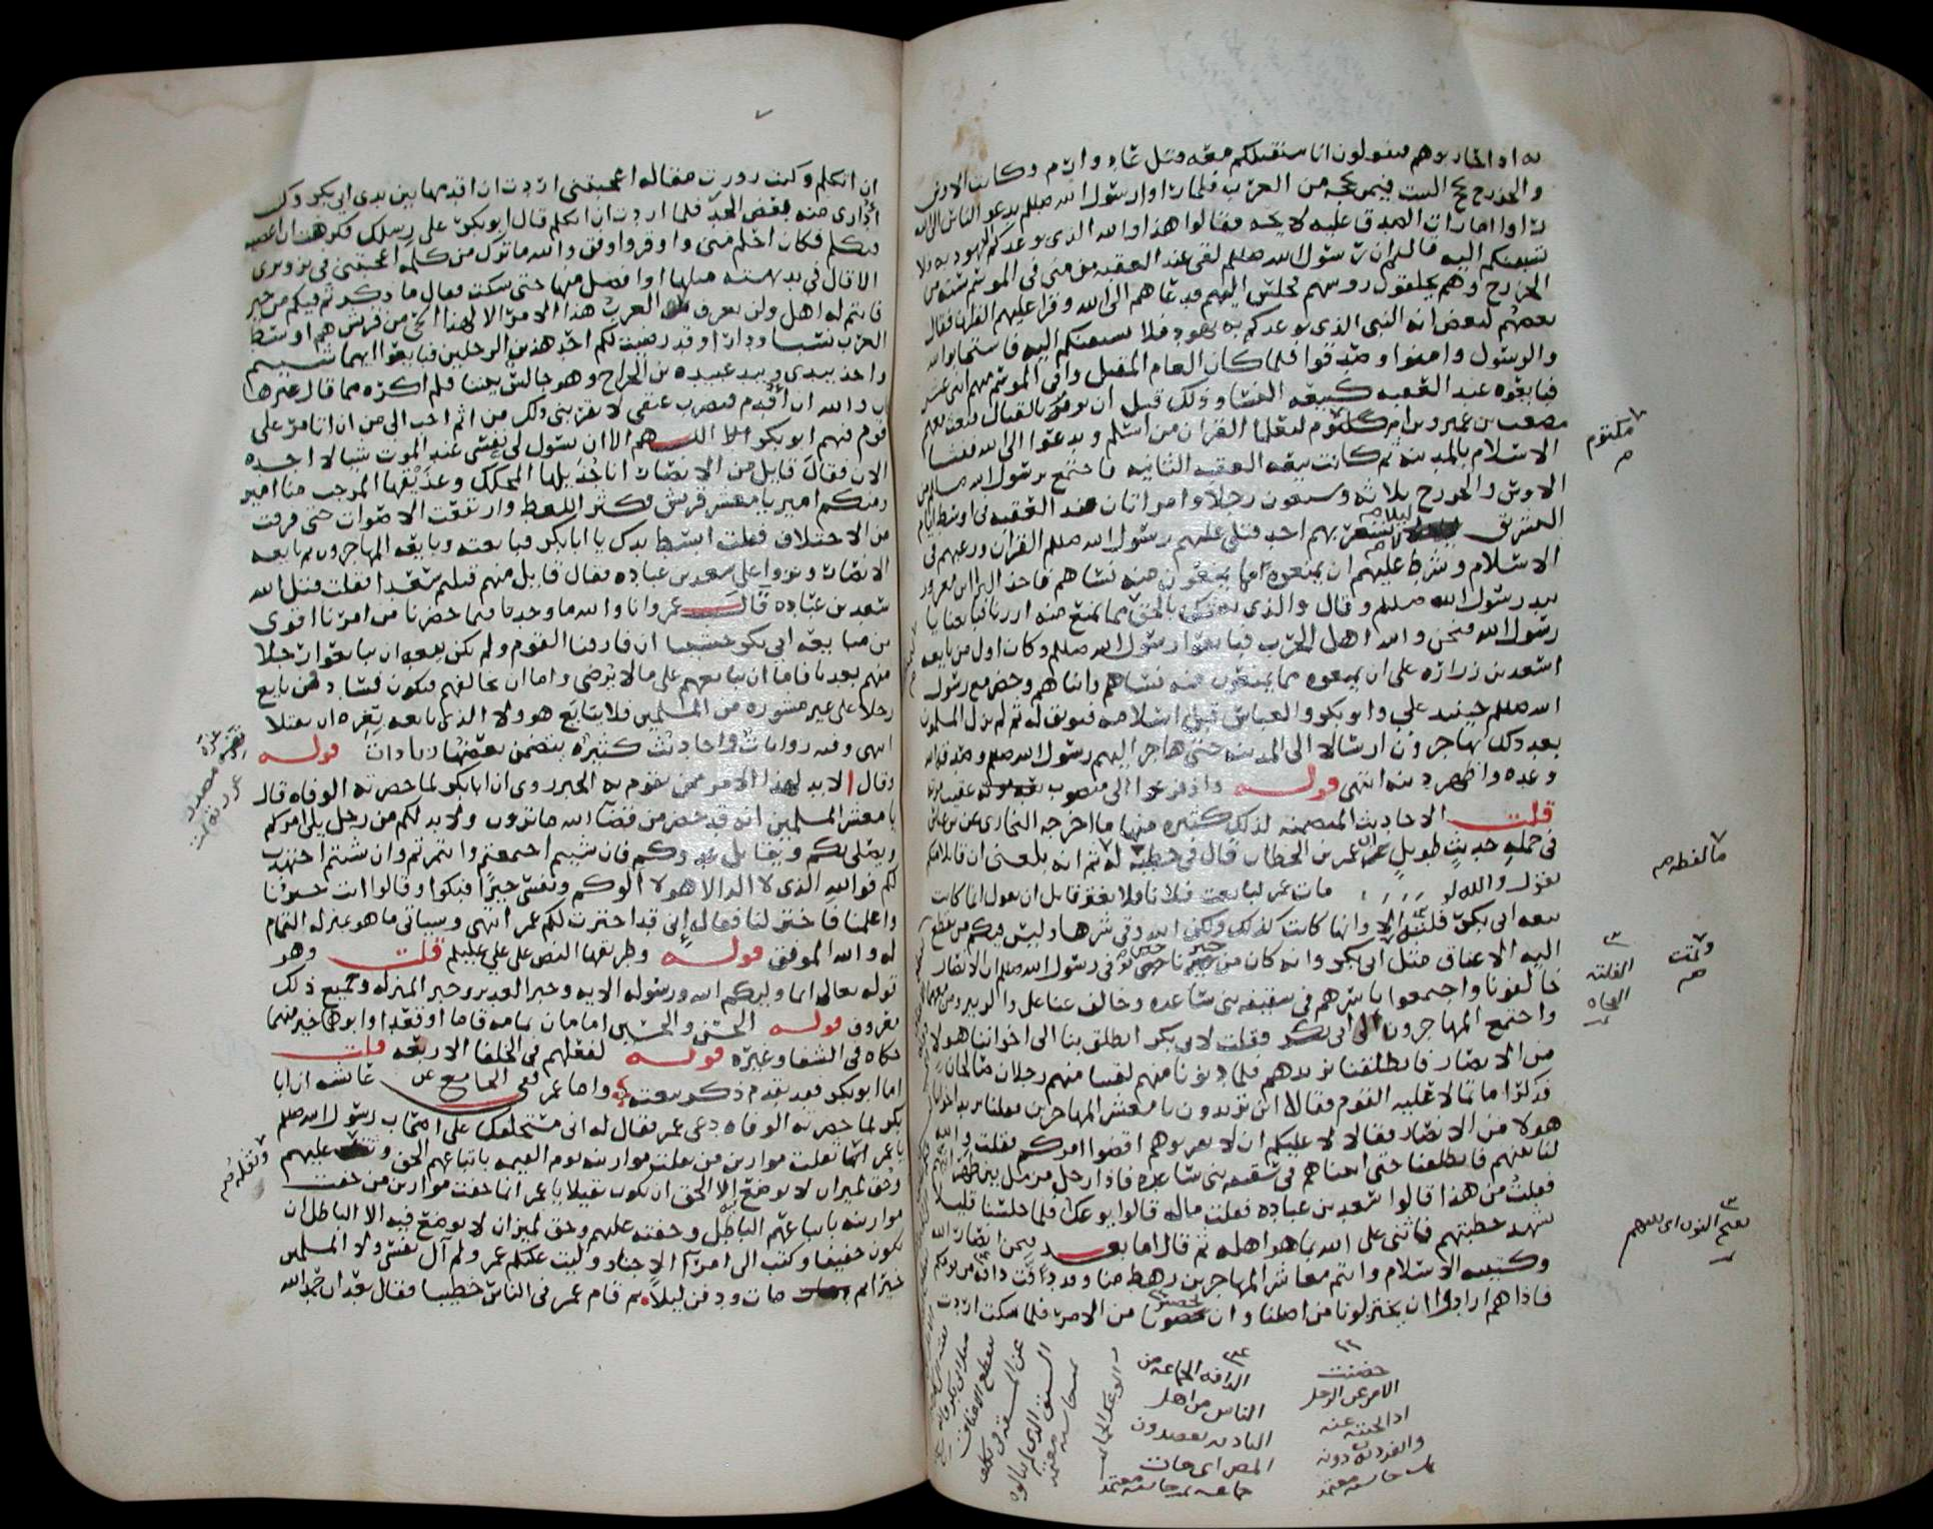 به اذا حاربوهم فيقولون انا سنقتلكم معه قتل عاد وارم وكانت الاوس
والخزرج تحج البيت فيمن يحجه من العرب فلما راوا رسول الله صللم يدعو الناس الى الله
راوا امارات الصدق عليه لايحه فقالوا هذا والله الذي توعدكم اليهود به فلا
تسبقنكم اليه قالوا ان رسول الله صللم لقي عند العقبه من منى في الموسم سته من
الخزرج وهم يحلقون روسهم فجلس اليهم فدعاهم الى الله وقرا عليهم القران فقال
بعضهم لبعض انه النبي الذي توعدكم به يهود فلا تسبقنكم اليه فاستجابوا لله
والرسول وامنوا وصدقوا فلما كان العام المقبل وافى الموسم منهم اثني عشر
فبايعوه عند العقبه كبيعه النسا وذلك قبل ان يومر بالقتال وبعث معهم
مصعب بن عمير وبن ام كلثوم لتعلما القران من اسلم ويدعوا الى الله ففشا
الاسلام بالمدينه ثم كانت بيعه العقبه الثانيه فاجتمع برسول الله صللم من
الاوس والخزرج ثلاثه وسبعون رجلا وامراتان عند العقبه في اوسط ايام
التشريق ليلا لم يشعر بهم احد فتلى عليهم رسول الله صللم القران ورغبهم في
الاسلام وشرط عليهم ان يمنعوه مما يمنعون منه نساهم فاخذ البرا بن معرور
بيد رسول الله صللم وقال والذي بعثك بالحق مما نمنع منه ازرنا فبايعنا يا
رسول الله فنحن والله اهل الحرب فبايعوا رسول الله صللم وكان اول من بايعه
اسعد بن زراره على ان يمنعوه مما يمنعون منه نساهم وابناهم وحضر مع رسول
الله صللم حينيذ علي وابو بكر والعباس قبل اسلامه فتوثق له ثم لم يزل المسلمون
بعد ذلك يهاجرون ارسالا الى المدينه حتى هاجر اليهم رسول الله صللم وصدق الله
وعده واظهر دينه انتهى قوله واذ فزعوا الى منصوب بعد موته عقيب
قلت الاحاديث المتضمنه لذلك كثيره منها ما اخرجه البخاري عن بن عباس
في جمله حديث طويل ان عمر بن الخطاب قال في خطبه له ثم انه بلغني ان قايلا منكم
يقول والله لو مات عمر لبايعت فلانا فلا يغتر قايل ان يقول انما كانت
بيعه ابي بكر فلته الا وانها كانت كذلك ولكن الله وقى شرها وليس فيكم من تقطع
اليه الاعناق مثل ابي بكر وانه كان من خبرنا حين توفي رسول الله صللم ان الانصار
خالفونا واجتمعوا باسرهم في سقيفه بني ساعده وخالف عنا علي والزبير ومن معهما
واجتمع المهاجرون الى ابي بكر فقلت لابي بكر انطلق بنا الى اخواننا هولا
من الانصار فانطلقنا نريدهم فلما دنونا منهم لقينا منهم رجلان صالحان
فذكرا ما تمالا عليه القوم فقالا اين تريدون يا معشر المهاجرين فقلنا نريد اخواننا
هولا من الانصار فقالا لا عليكم ان لا تقربوهم اقضوا امركم فقلت والله
لناتينهم فانطلقنا حتى اتيناهم في سقيفه بني ساعده فاذا رجل مزمل بين ظهرانيهم
فقلت من هذا قالوا سعد بن عباده فقلت ماله قالوا يوعك فلما جلسنا قليلا
تشهد خطيبهم فاثنى على الله بما هو اهله ثم قال اما بعد فنحن انصار الله
وكتيبه الاسلام وانتم معاشر المهاجرين رهط منا وقد دفت دافه من قومكم
فاذا هم ارادوا ان يختزلونا من اصلنا وان يحضنونا من الامر فلما سكت اردت
مكتوم
ما لفظه
وتمت
الفلته
الفجاه
حضنت
الامر عن الرجل
اذا نحيته عنه
وانفردت به دونه
الدافه الجماعه من
الناس من اهل
الباديه يقصدون
المصر
ان اتكلم وكنت زورت مقاله اعجبتني اردت ان اقدمها بين يدي ابي بكر وكنت
اداري منه بعض الحد فلما اردت ان اتكلم قال ابو بكر على رسلك فكرهت ان اعصيه
فتكلم فكان احلم مني واوقر واوفق والله ما ترك من كلمه اعجبتني في تزويري
الا قال في بديهته مثلها او افضل منها حتى سكت فقال ما ذكرتم فيكم من خير
فانتم له اهل ولن تعرف العرب هذا الامر الا لهذا الحي من قريش هم اوسط
العرب نسبا ودارا وقد رضيت لكم احد هذين الرجلين فبايعوا ايهما شيتم
واخذ بيدي وبيد عبيده بن الجراح وهو جالس بيننا فلم اكره مما قال غيرها
كان والله ان اقدم فتضرب عنقي لا يقربني ذلك من اثم احب الي من ان اتامر على
قوم فيهم ابو بكر اللهم الا ان تسول لي نفسي عند الموت شيا لا اجده
الان فقال قايل من الانصار انا جذيلها المحكك وعذيقها المرجب منا امير
ومنكم امير يا معشر قريش فكثر اللغط وارتفعت الاصوات حتى فرقت
من الاختلاف فقلت ابسط يدك يا ابا بكر فبايعته وبايعه المهاجرون ثم بايعه
الانصار ونزوا على سعد بن عباده فقال قايل منهم قتلتم سعدا فقلت قتل الله
سعد بن عباده قال عمر وانا والله ما وجدنا فيما حضرنا من امرنا اقوى
من مبايعه ابي بكر خشينا ان فارقنا القوم ولم تكن بيعه ان يبايعوا رجلا
منهم بعدنا فاما ان نبايعهم على ما لا نرضى واما ان نخالفهم فيكون فساد فمن بايع
رجلا على غير مشوره من المسلمين فلا يتابع هو ولا الذي بايعه تغره ان يقتلا
انتهى وفيه روايات واحاديث كثيره يتضمن بعضها زيادات قوله
وقال الا لا بد لهذا الامر ممن يقوم به الخبر روى ان ابا بكر لما حضرته الوفاه قال
يا معشر المسلمين انه قد حضر من قضا الله ما ترون ولا بد لكم من رجل يلي امركم
ويصلي بكم ويقاتل عدوكم فان شيتم اجتمعتم وايتمرتم وان شيتم اجتهدت
لكم فوالله الذي لا اله الا هو لا الوكم ونفسي خيرا فبكوا وقالوا انت خيرنا
واعلمنا فاختر لنا فقال اني قد اخترت لكم عمر انتهى وسياتي ما هو بمنزله التمام
له والله الموفق قوله وطريقها النص على علي عليلم قلت وهو
قوله تعالى انما وليكم الله ورسوله الايه وخبر الغدير وخبر المنزله وجميع ذلك
معروف قوله الحسن والحسين امامان تمامه قاما او قعدا وابوهما خير منهما
حكاه في الشفا وغيره قوله لفعلهم في الخلفا الاربعه قلت
اما ابو بكر فقد تقدم ذكر بيعته واما عمر ففي الجامع عن عايشه ان ابا
بكر لما حضرته الوفاه دعى عمر فقال له اني مستخلفك على اصحاب رسول الله صللم
يا عمر انما ثقلت موازين من ثقلت موازينه يوم القيمه باتباعهم الحق وثقله عليهم
وحق لميزان لا يوضع فيه الا الحق ان يكون ثقيلا يا عمر انما خفت موازين من خفت
موازينه باتباعهم الباطل وخفته عليهم وحق لميزان لا يوضع فيه الا الباطل ان
يكون خفيفا وكتب الى امرا الاجناد وليت عليكم عمر ولم آل نفسي ولا المسلمين
خيرا ثم مات ودفن ليلا ثم قام عمر في الناس خطيبا فقال بعد ان حمد الله
وثقله